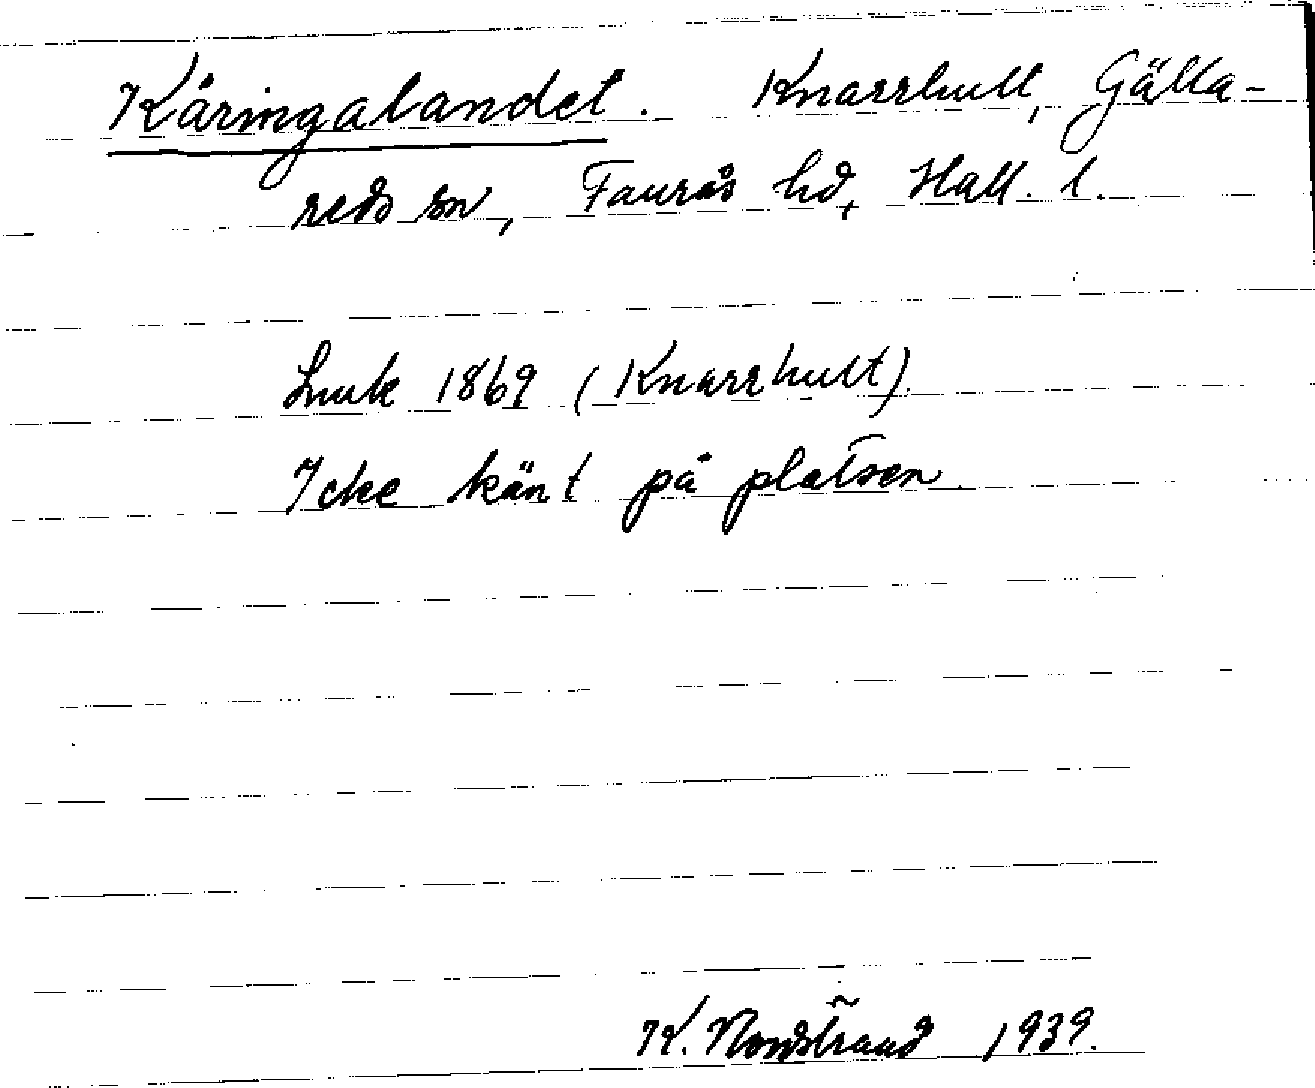 Käringalandet. Knarrhult, Gälla-
reds sn, Faurås hd, Hall. l.
Lmk 1869 (Knarrhult).
Icke känt på platsen.
K. Nordstrand 1939.